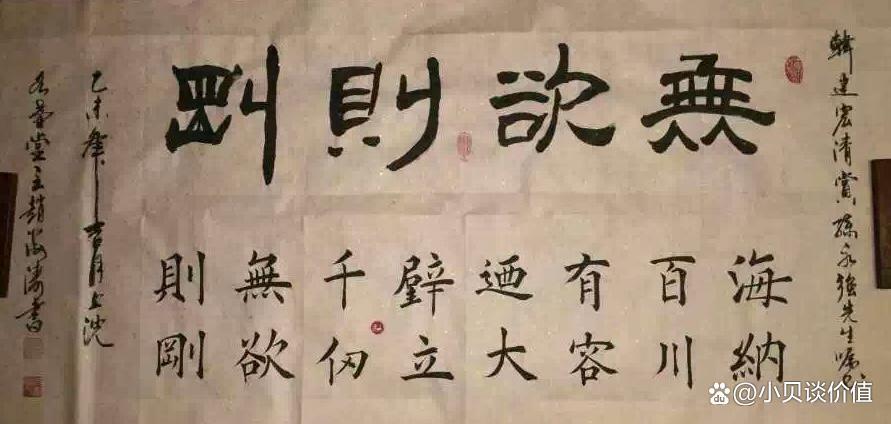 韓建宏清賞 孫永強先生囑
無欲則剛
海納
百川
有容
迺大
壁立
千仞
無欲
則剛
乙未年吉月上浣
堂主趙海濤書
@小贝谈价值